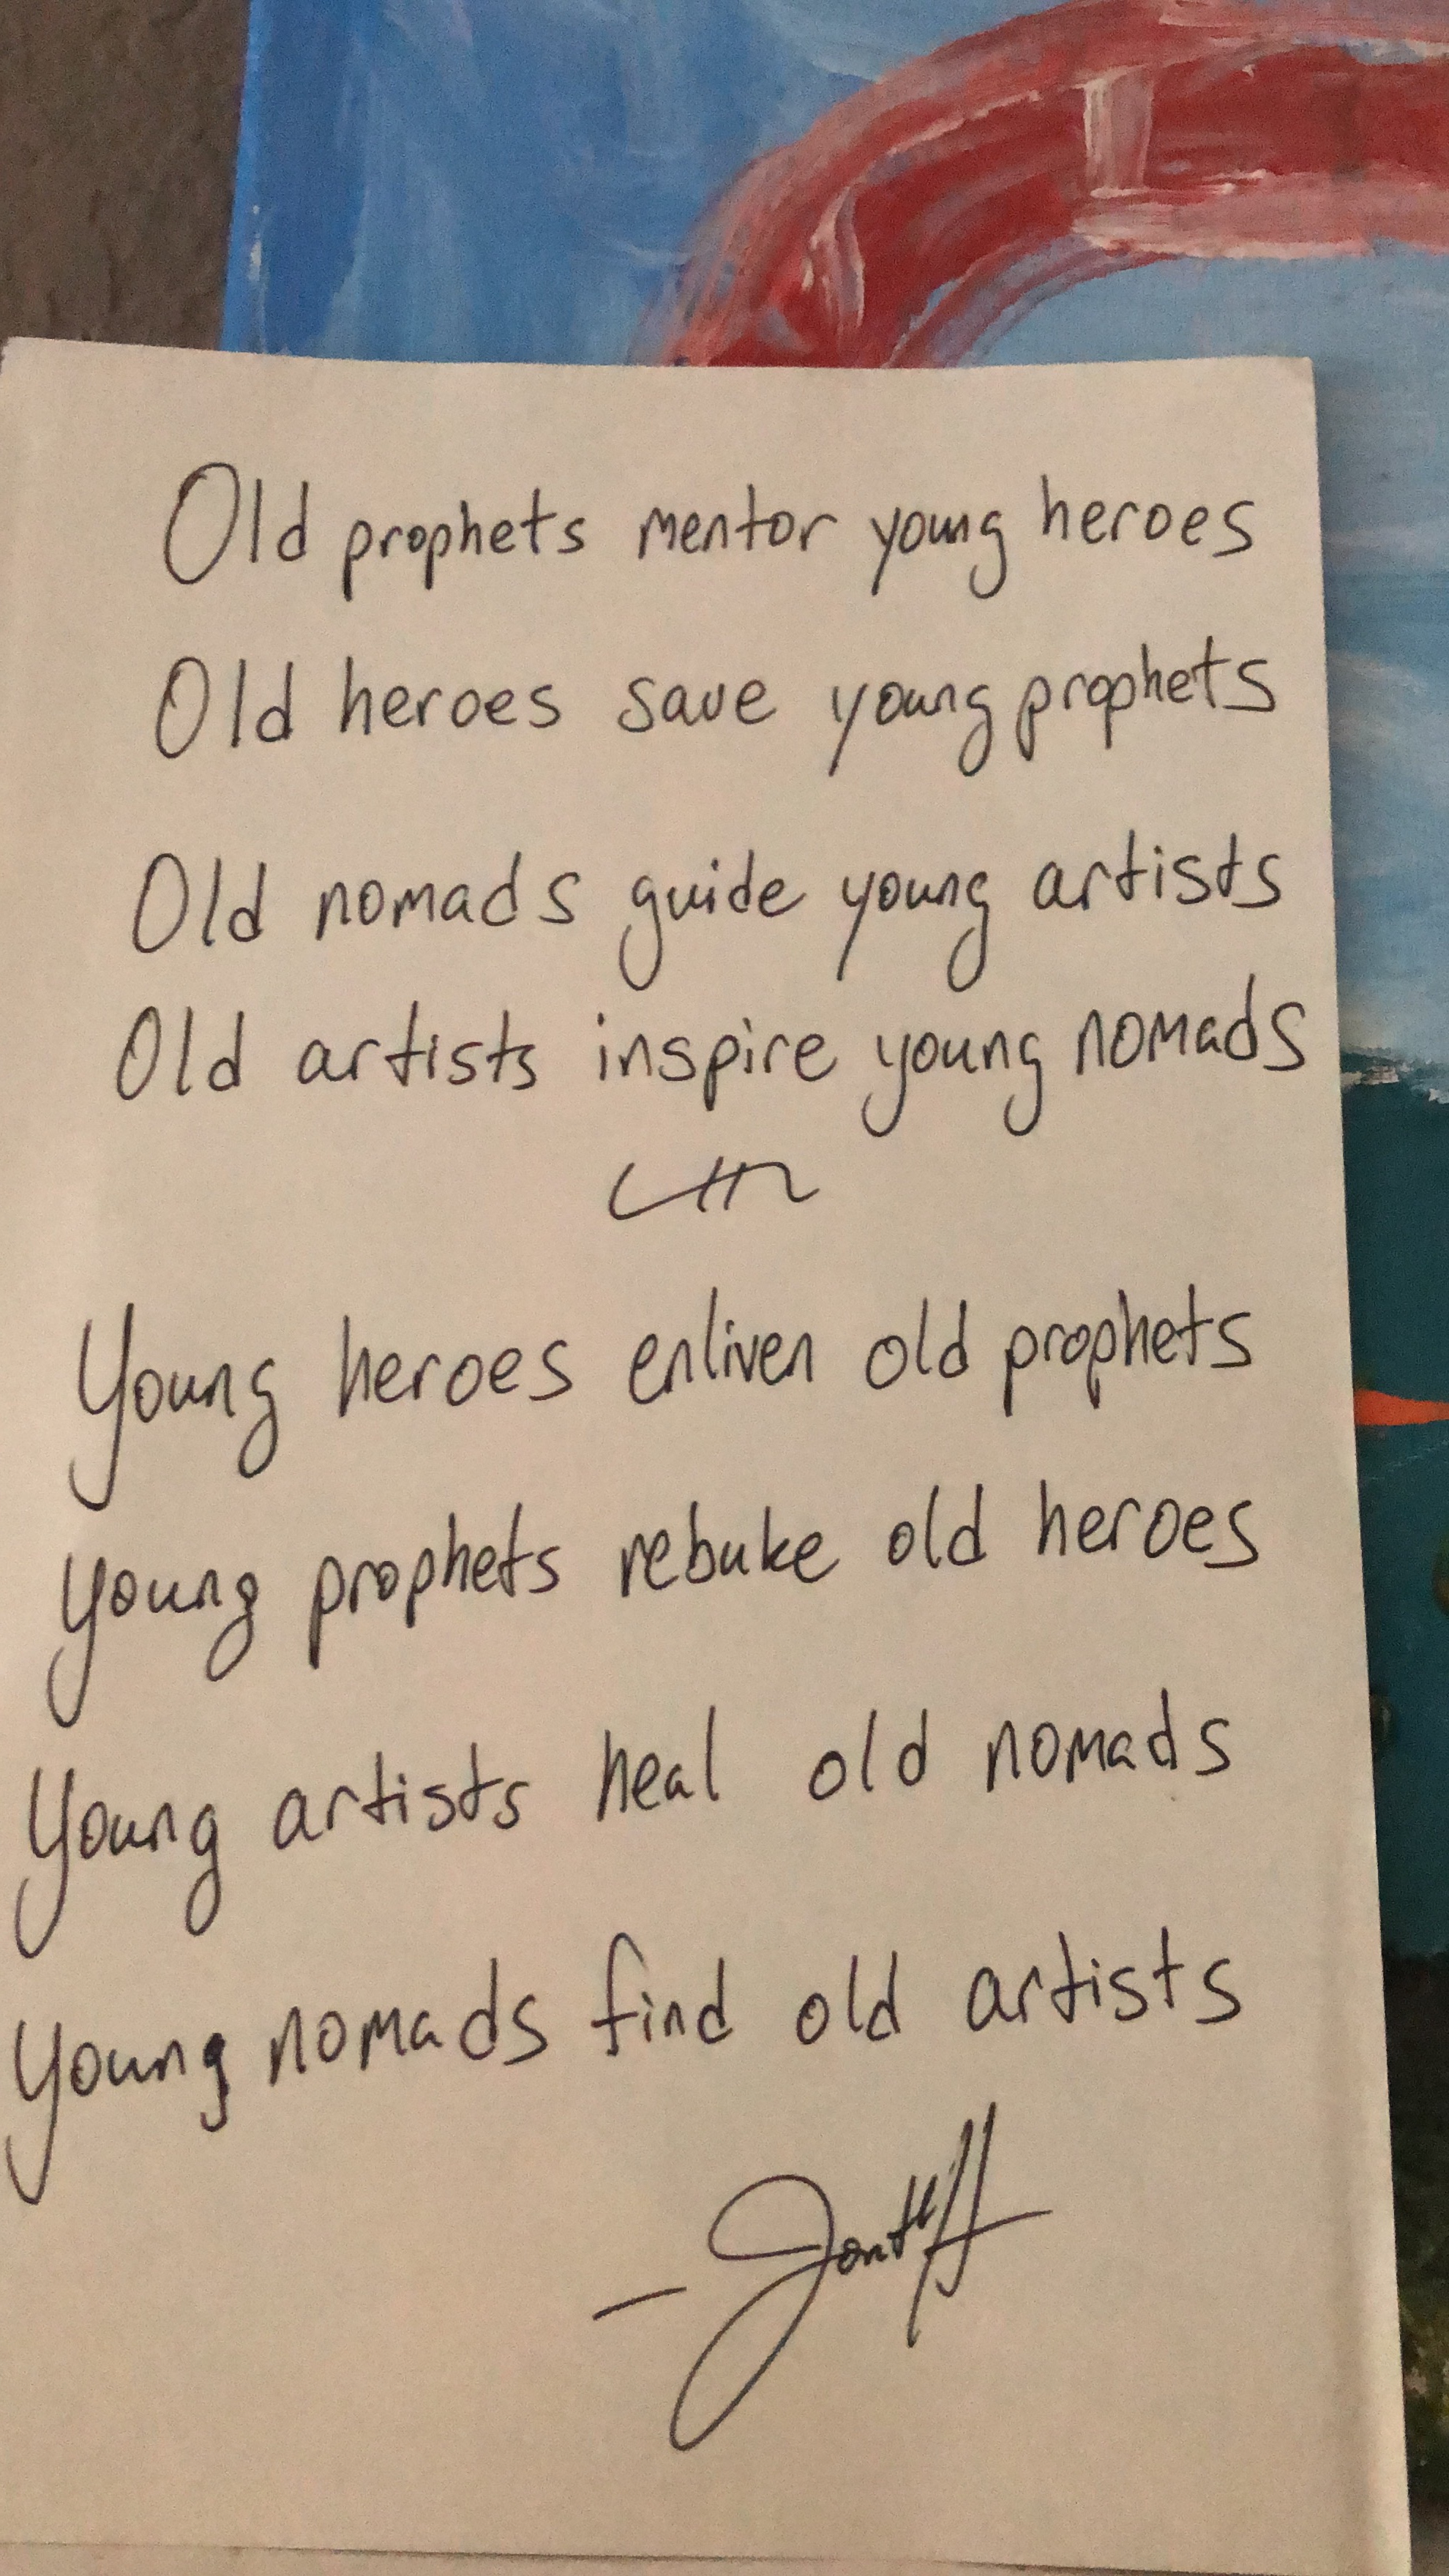 Old prophets mentor young heroes
Old heroes save young prophets
Old nomads guide young artists
Old artists inspire young nomads
Young heroes enliven old prophets
Young prophets rebuke old heroes
Young artists heal old nomads
Young nomads find old artists